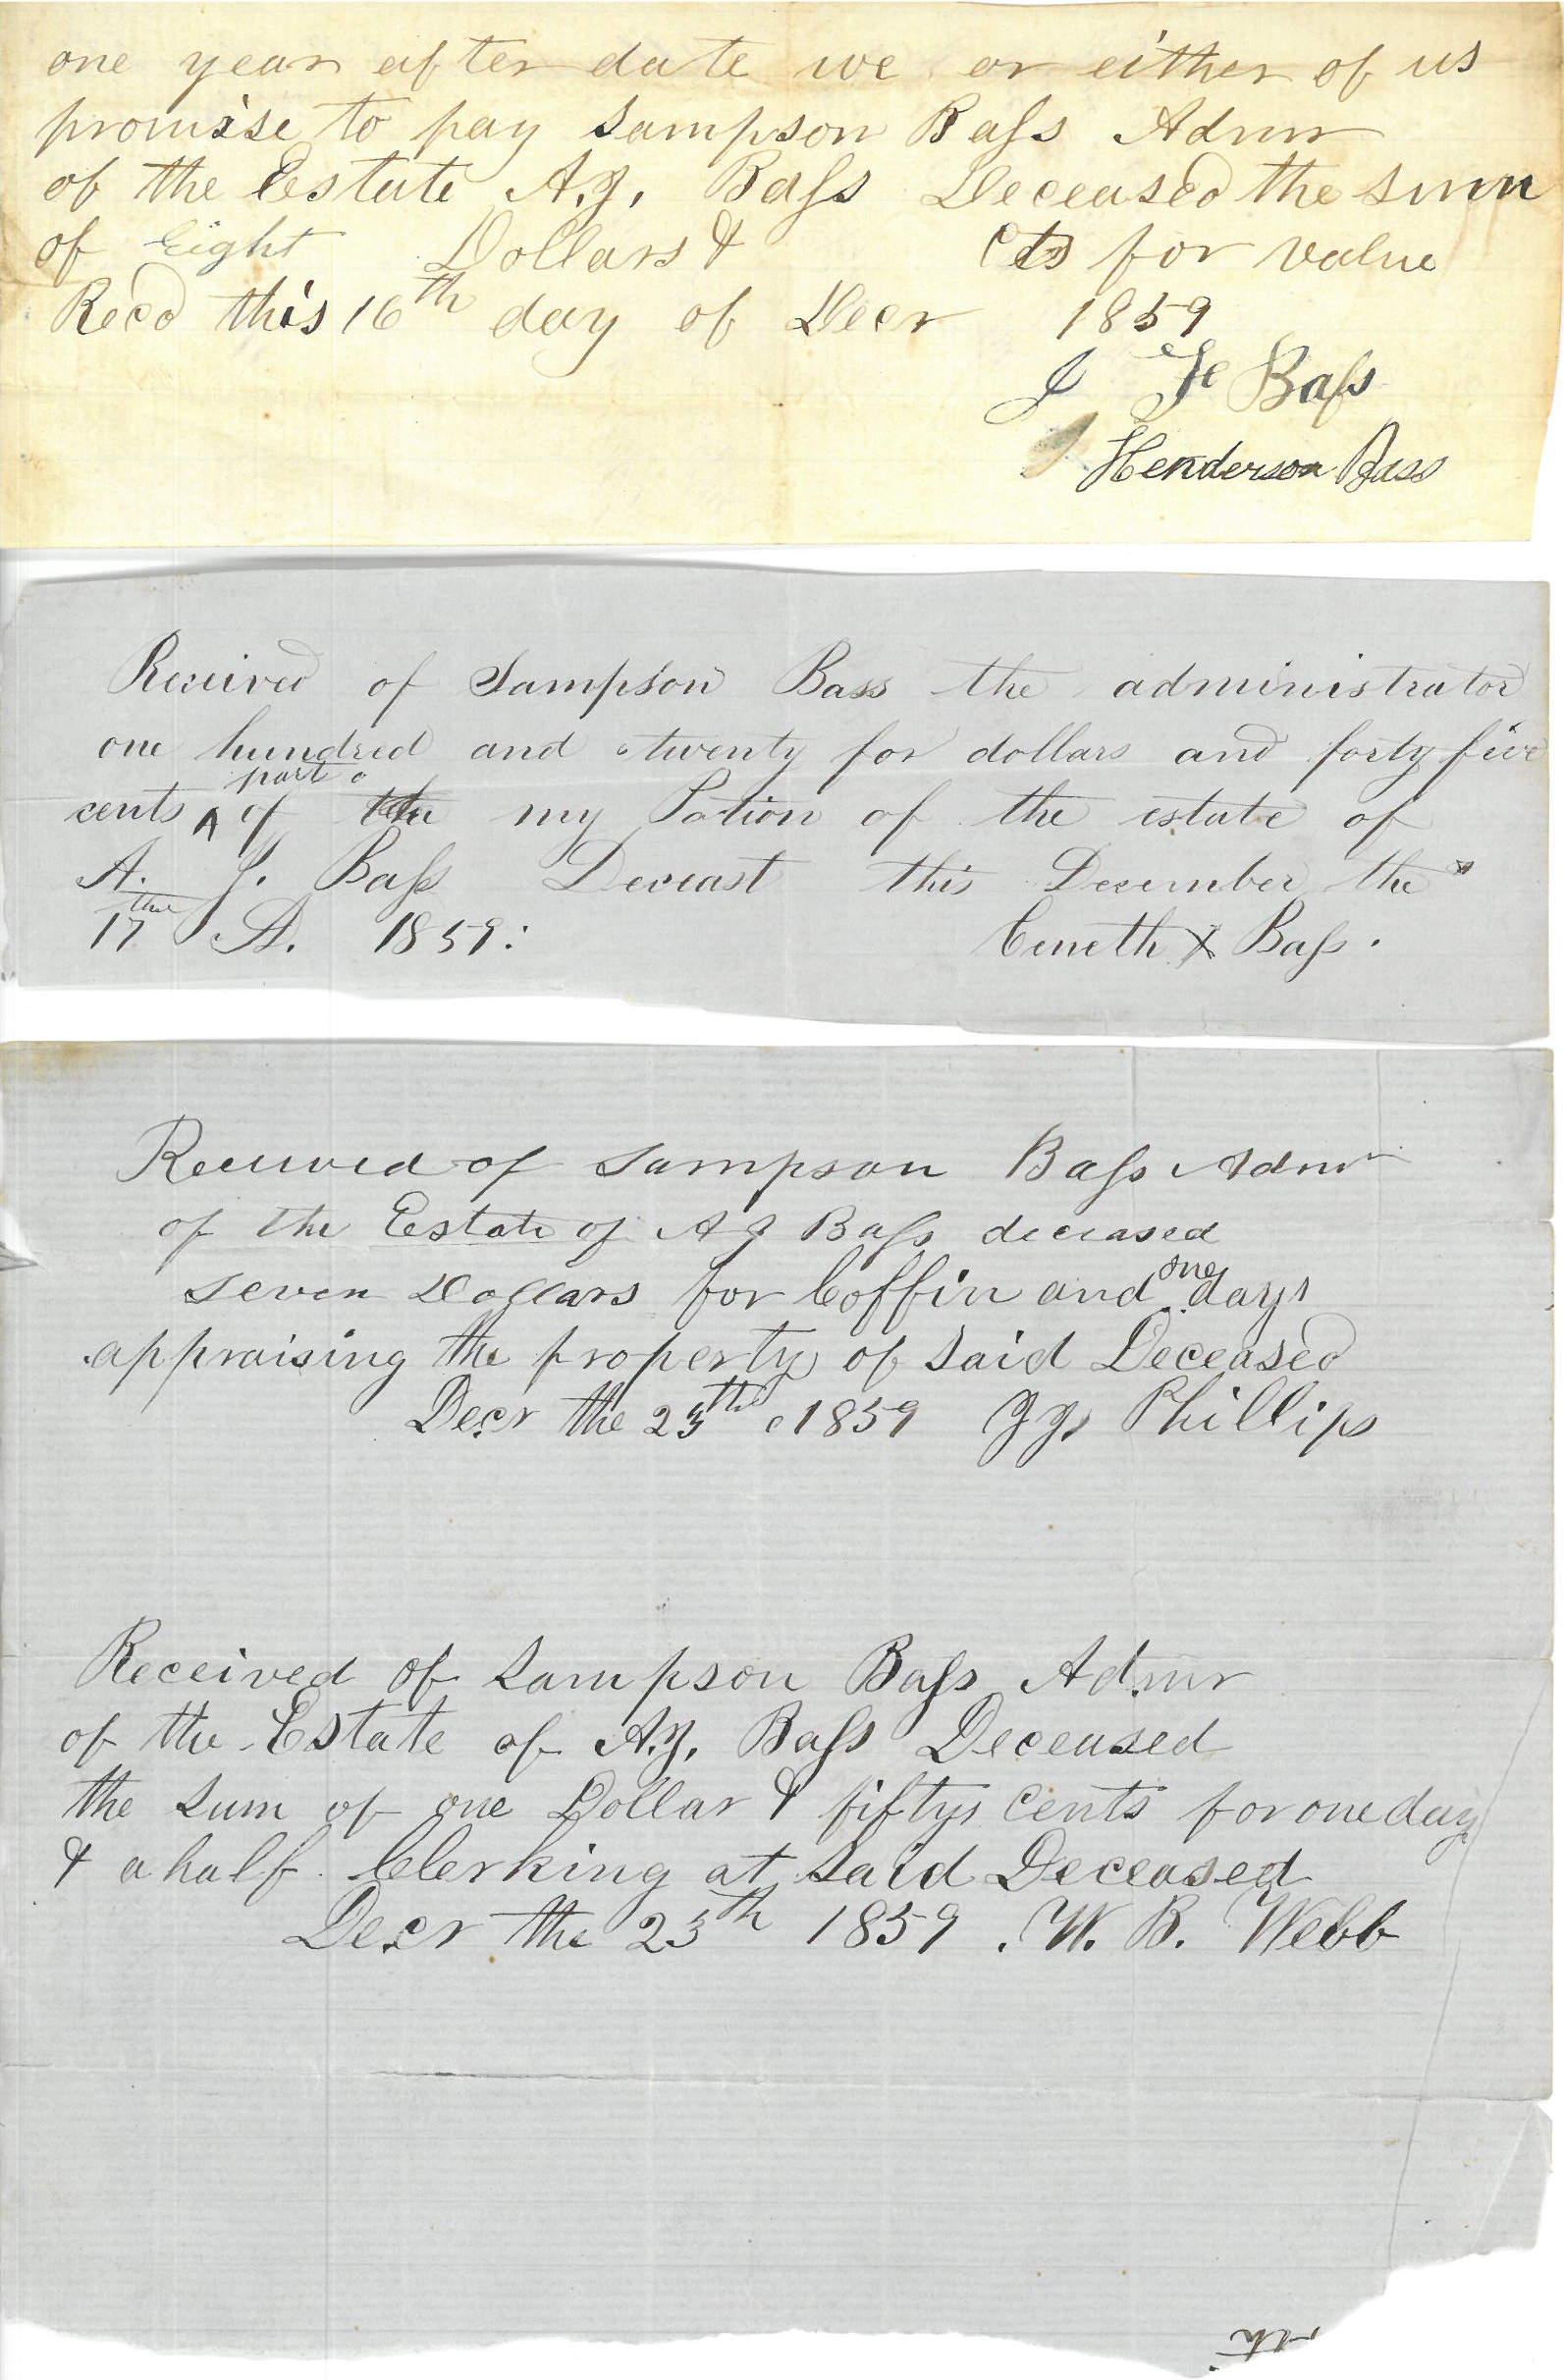 one year after date we or either of us
promise to pay Sampson Bass Admr
of the Estate A.J. Bass Deceased the sum
of Eight Dollars & Cts for value
Recd this 16th day of Decr 1859
Bass
Henderson Bass
Received of Sampson Bass the administrator
one hundred and twenty for dollars and forty five
part
cents ^ of my Potion of the estate of
A. J. Bass Deceast this December the
17 the A. 1859:
Ceneth X Bass.
Received of Sampson Bass Admr
of the Estate of A J Bass deceased
one
seven Dollars for Coffin and days
appraising the property of Said Deceased
Decr the 23th 1859 J J. Phillips
Received of Sampson Bass Admr
of the Estate of A.J. Bass Deceased
the Sum of one Dollar & fiftys Cents for one day
& a half Clerking at Said Deceased
Decr the 23th 1859. W. B. Webb